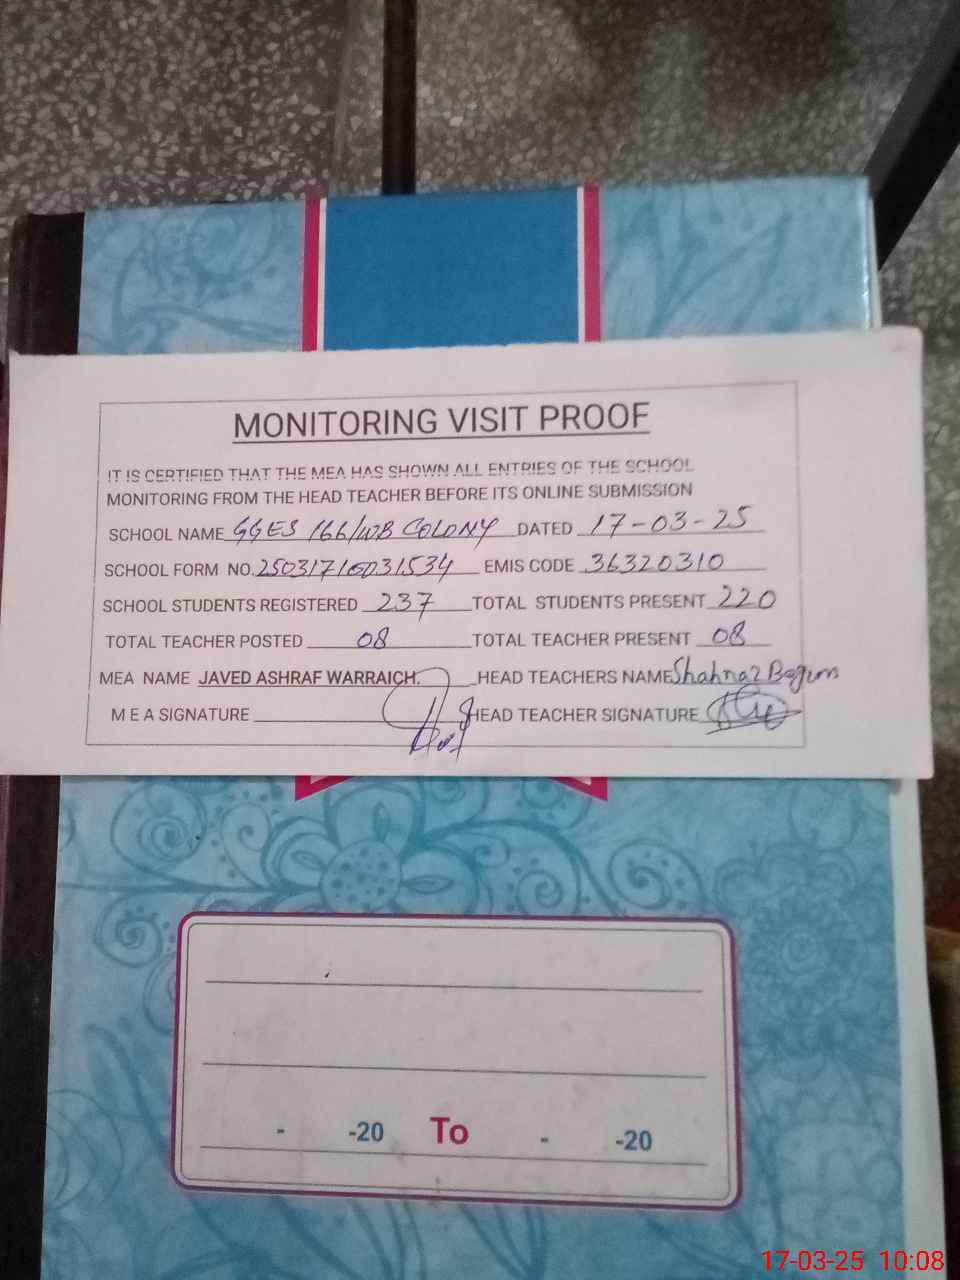 MONITORING VISIT PROOF
IT IS CERTIFIED THAT THE MEA HAS SHOWN ALL ENTRIES OF THE SCHOOL
MONITORING FROM THE HEAD TEACHER BEFORE ITS ONLINE SUBMISSION
SCHOOL NAME GGES 166/WB COLONY DATED 17-03-25
SCHOOL FORM NO. EMIS CODE 36320310
SCHOOL STUDENTS REGISTERED 237 TOTAL STUDENTS PRESENT 220
TOTAL TEACHER POSTED 08 TOTAL TEACHER PRESENT 08
MEA NAME JAVED ASHRAF WARRAICH. HEAD TEACHERS NAME Shahnaz Begum
M E A SIGNATURE HEAD TEACHER SIGNATURE
- -20 To - -20
17-03-25 10:08